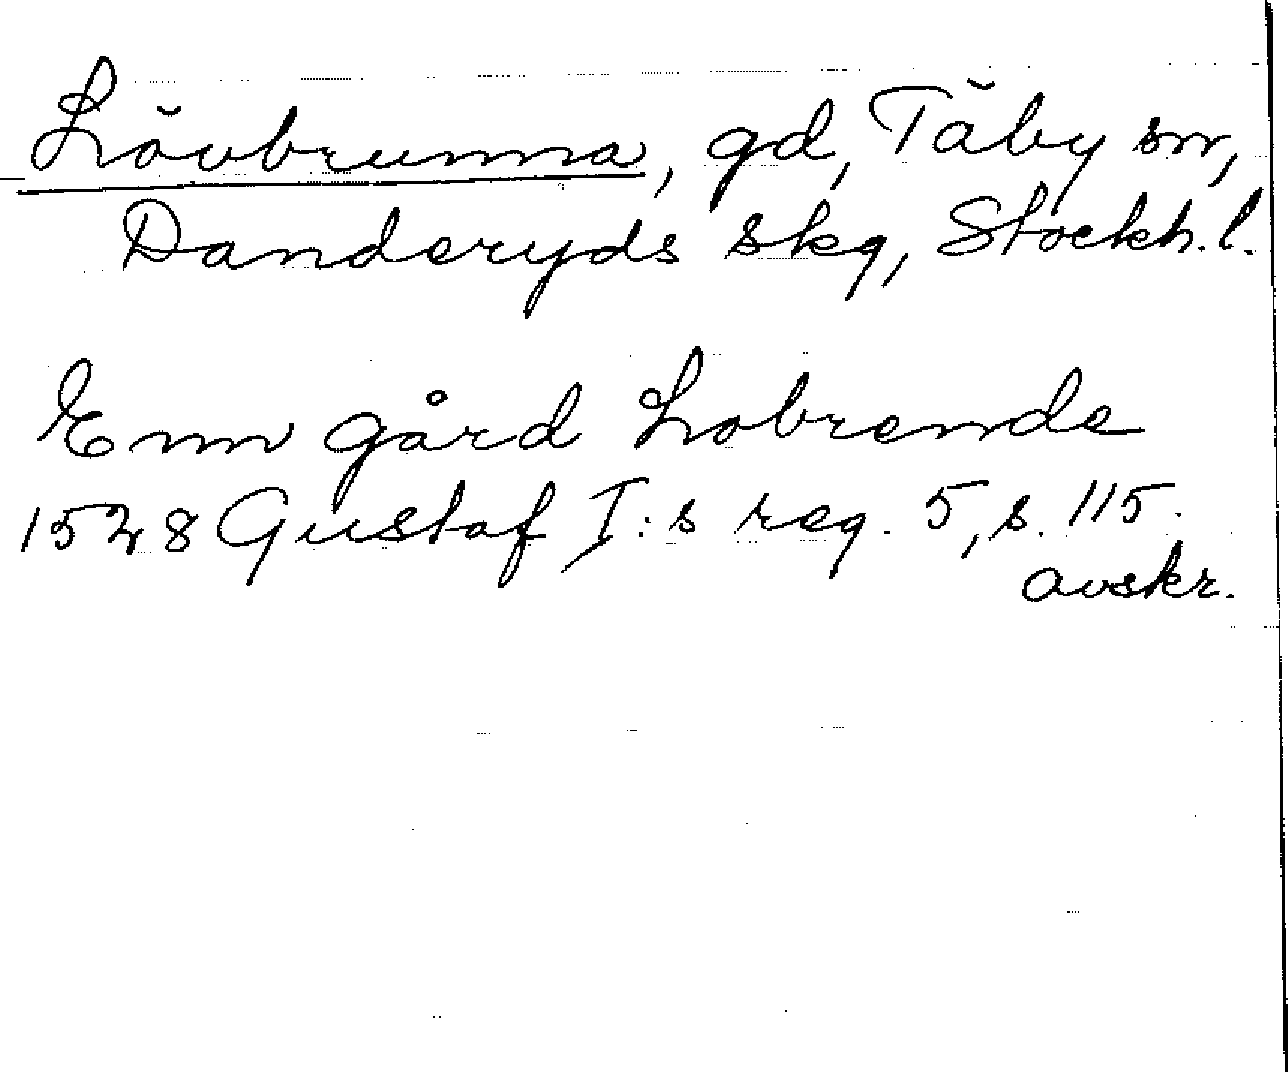 Lövbrunna, gd, Täby sn,
Danderyds skg, Stockh. l.
Enn gård Lobrende
1528 Gustaf I:s reg. 5, s. 115.
avskr.